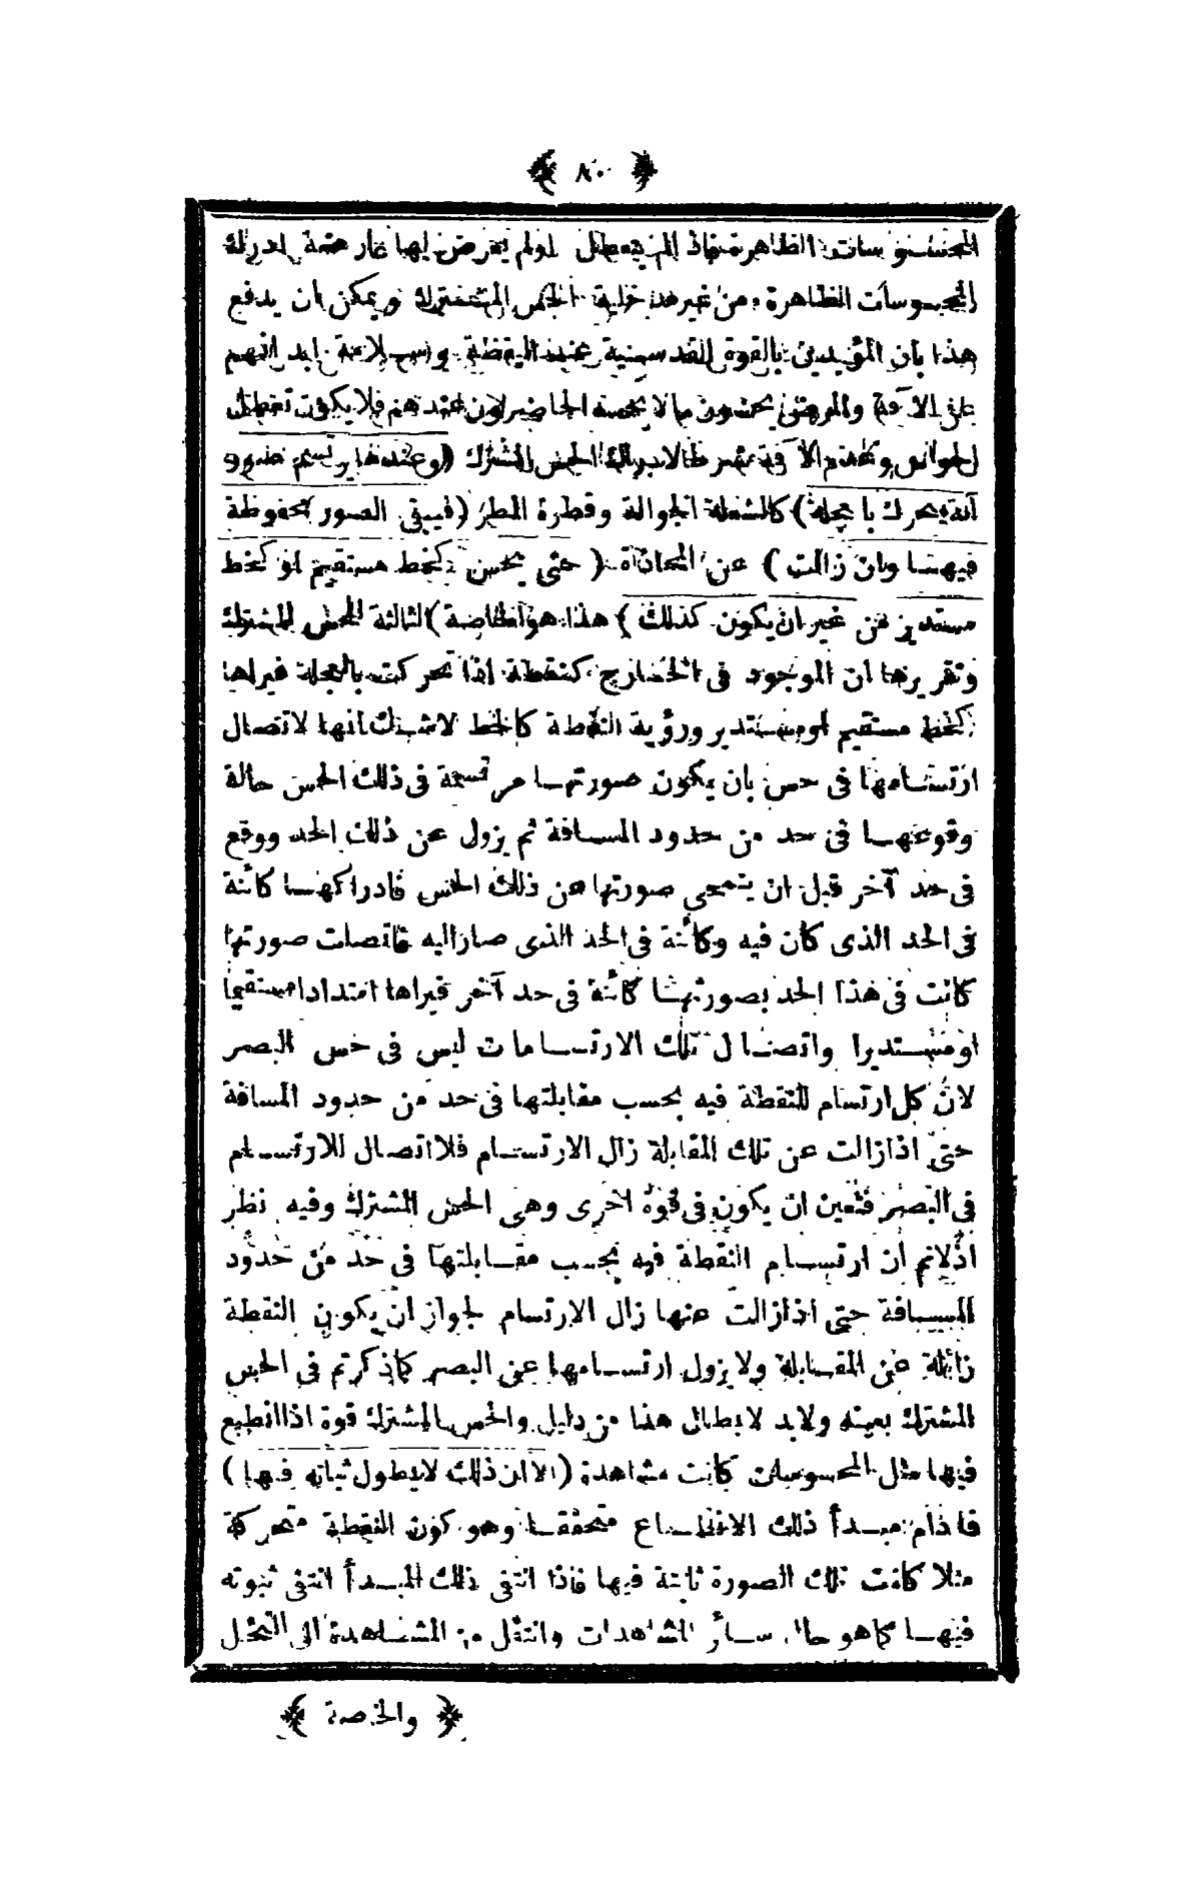 ﴿ ٨٠ ﴾
المحسوسات الظاهرة فاذا لم يتعطل اولم يعرض لها عارضة لدرك
المحسوسات الظاهرة من غير مدخلية الحس المشترك ويمكن ان يدفع
هذا بان المؤيدين بالقوة القدسية عند اليقظة وسلامة ابدانهم
على الآفة والمرضى يحسون ما لا يحسه الحاضرون عندهم فلا يكون تعطل
الحواس وتقدم الآفة شرطا لادراك الحس المشترك (وعندها يرتسم صورو
آنة يتحرك بالعجلة) كالشعلة الجوالة وقطرة المطر (فيبقى الصور محفوظة
فيهـا وان زالت) عن المحاذاة (حتى يحس كخط مستقيم او كخط
مستدير من غير ان يكون كذلك) هذا هو الخاصة الثالثة للحس المشترك
وتقريرها ان الموجود فى الخارج كنقطة اذا تحركت بالعجلة فيراها
كخط مستقيم او مستدير ورؤية النقطة كالخط لاشك انها لاتصال
ارتسامها فى حس بان يكون صورتها مرتسمة فى ذلك الحس حالة
وقوعها فى حد من حدود المسافة ثم يزول عن ذلك الحد ووقع
فى حد آخر قبل ان ينمحى صورتها من ذلك الحس فادراكها كائنة
فى الحد الذى كان فيه وكائنة فى الحد الذى صار اليه فاتصلت صورتها
كانت فى هذا الحد بصورتها كائنة فى حد آخر فيراها امتدادا مستقيما
او مستديرا واتصال تلك الارتسامات ليس فى حس البصر
لان كل ارتسام للنقطة فيه بحسب مقابلتها فى حد من حدود المسافة
حتى اذا زالت عن تلك المقابلة زال الارتسام فلا اتصال للارتسام
فى البصر فتعين ان يكون فى قوة اخرى وهى الحس المشترك وفيه نظر
اذ لانم ان ارتسام النقطة فيه بحسب مقابلتها فى حد من حدود
المسافة حتى اذا زالت عنها زال الارتسام لجواز ان يكون النقطة
زائلة عن المقابلة ولا يزول ارتسامها عن البصر كما ذكرتم فى الحس
المشترك بعينه ولابد لابطال هذا من دليل والحس المشترك قوة اذا انطبع
فيها مثل المحسوسات كانت مشاهدة (الا ان ذلك لا يطول ثباته فيها)
فادام مبدأ ذلك الانطباع متحققا وهو كون النقطة متحركة
مثلا كانت تلك الصورة ثابتة فيها فاذا انتفى ذلك المبدأ انتفى ثبوته
فيها كما هو حال سائر المشاهدات وانتقل من المشاهدة الى التخيل
﴿ والخاصة ﴾